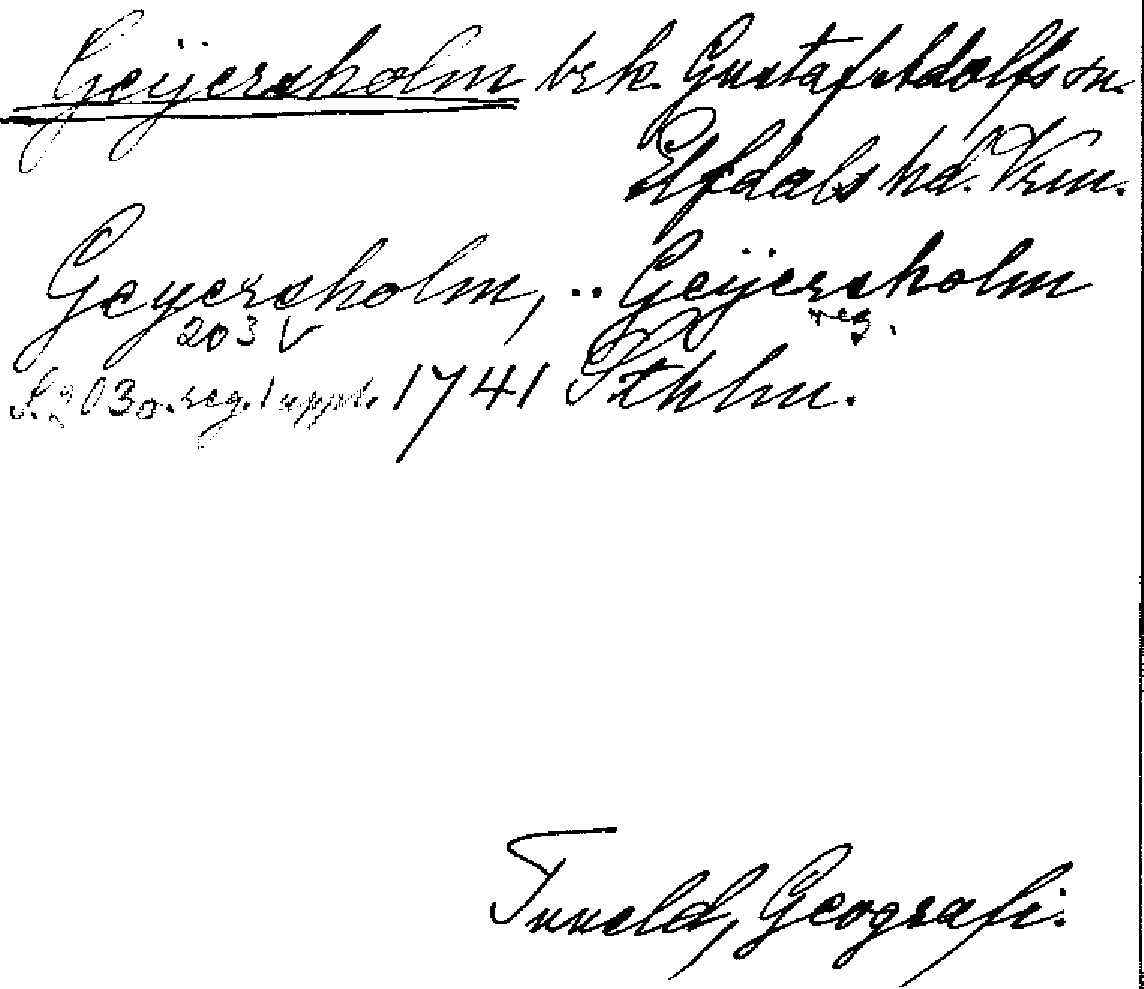 Geijersholm brk. Gustaf Adolfs sn.
Elfdals hd. Vrm.
Geyersholm, .. Geijersholm
203 V reg.
S. 203 o. reg. 1 uppl. 1741 Sthlm.
Tuneld, Geografi.